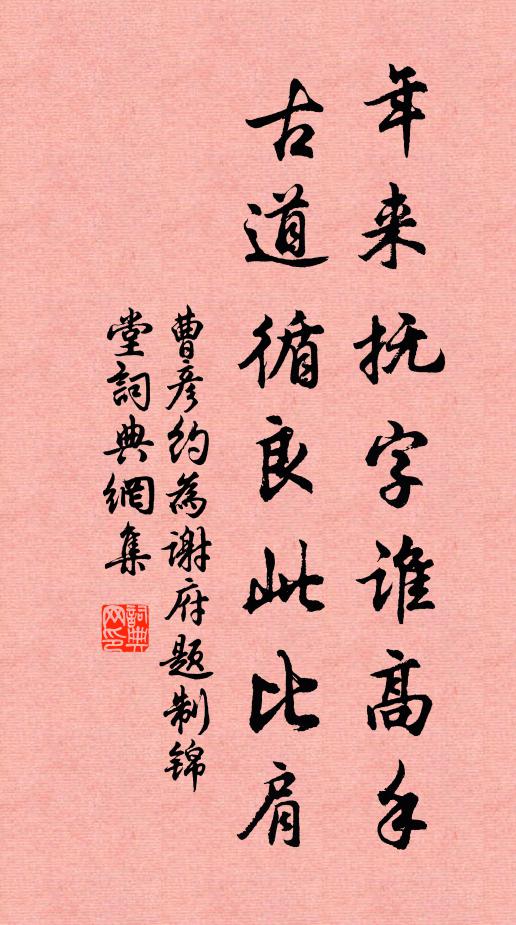 年来抚字谁高手
古道循良此比肩
曹彦约為谢府题制锦
堂詞典網集
詞典網印